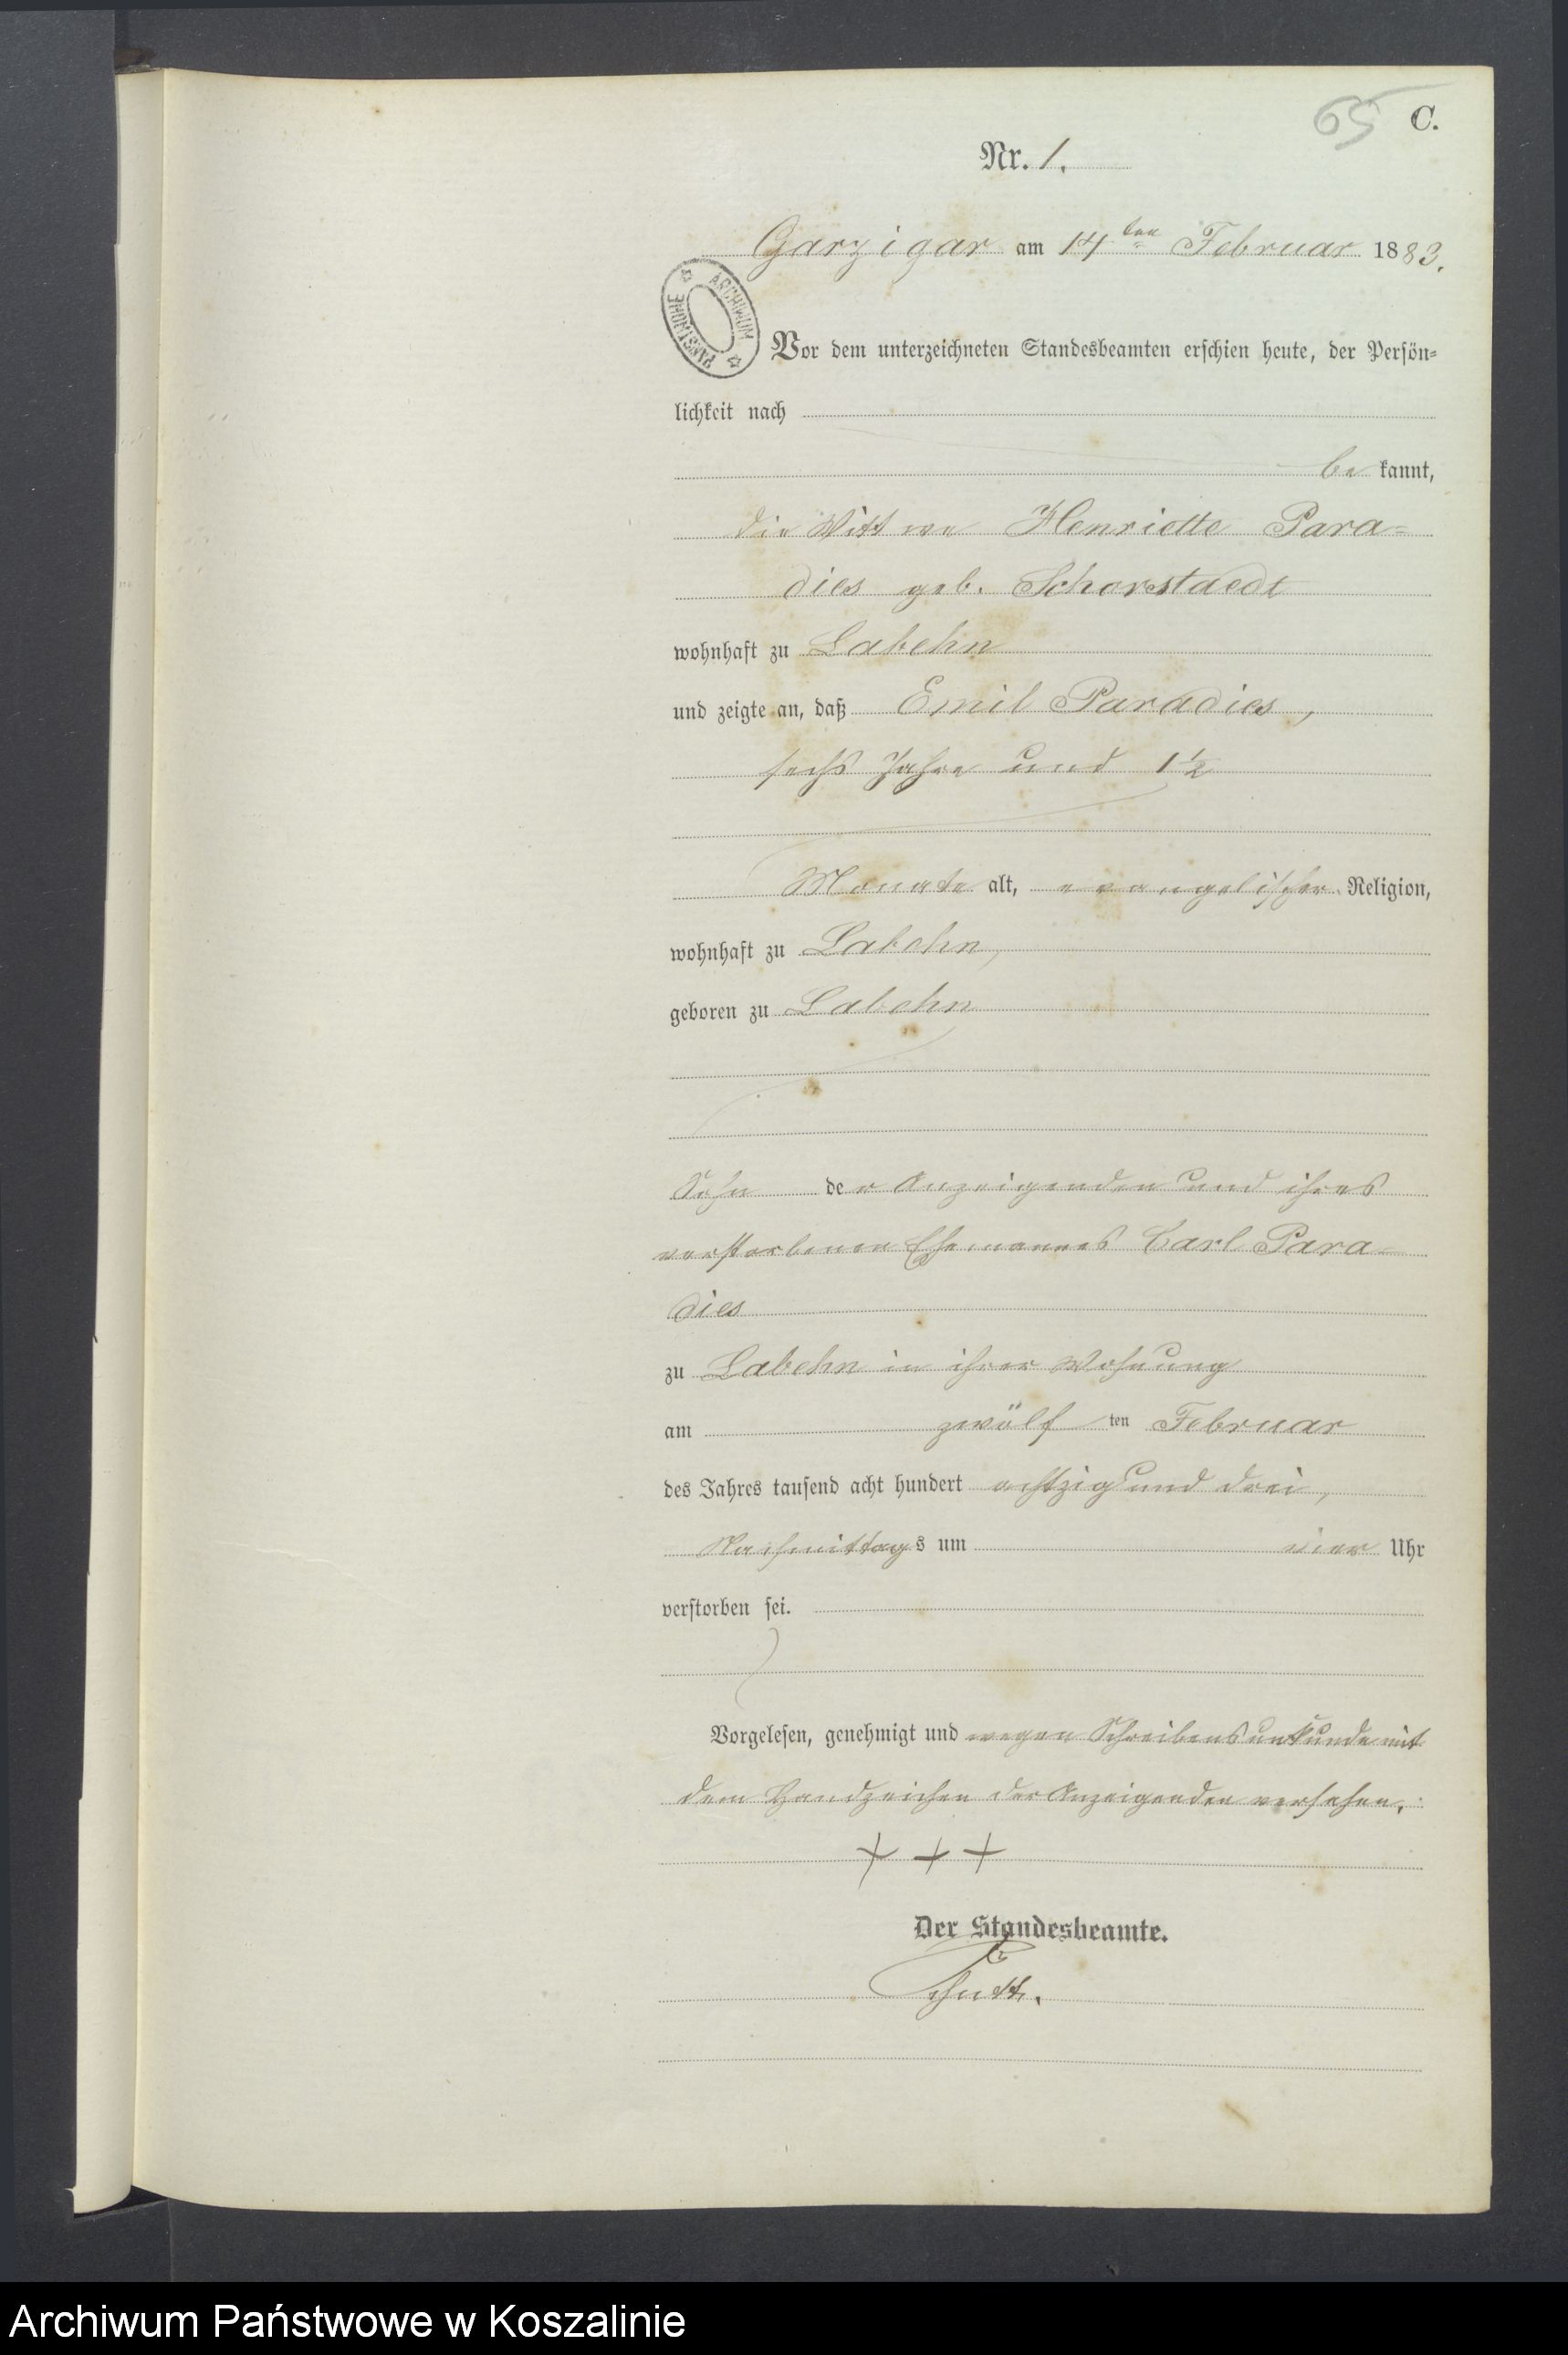 65 C.
Nr. 1.
Garzigar am 14ten Februar 1883.
ARCHIWUM PAŃSTWOWE
Vor dem unterzeichneten Standesbeamten erschien heute, der Persön=
lichkeit nach
be kannt,
die Wittwe Henriette Para=
dies geb. Schorstaedt
wohnhaft zu Labehn
und zeigte an, daß Emil Paradies,
sechs Jahre und 1 1/2
Monate alt, evangelischer Religion,
wohnhaft zu Labehn,
geboren zu Labehn
Sohn der Anzeigenden und ihres
verstorbenen Ehemannes Carl Para=
dies
zu Labehn in ihrer Wohnung
am zwölf ten Februar
des Jahres tausend acht hundert achtzig und drei,
Nachmittags um vier Uhr
verstorben sei.
Vorgelesen, genehmigt und wegen Schreibensunkunde mit
dem Handzeichen der Anzeigenden versehen.
+ + +
Der Standesbeamte.
Archiwum Państwowe w Koszalinie